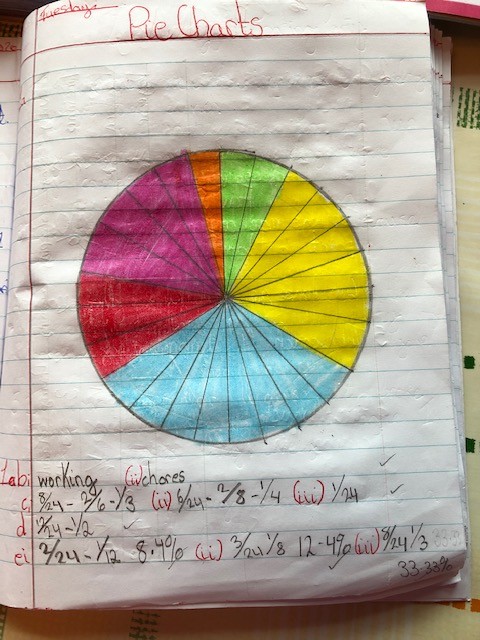 Tuesday
Pie Charts
1abi working (ii) chores
c, 8/24 - 2/6 - 1/3 (ii) 6/24 - 2/8 - 1/4 (iii) 1/24
d 12/24 - 1/2
ei 2/24 - 1/12 8.4% (ii) 3/24 1/8 12-4% (iii) 8/24 1/3
33.33%